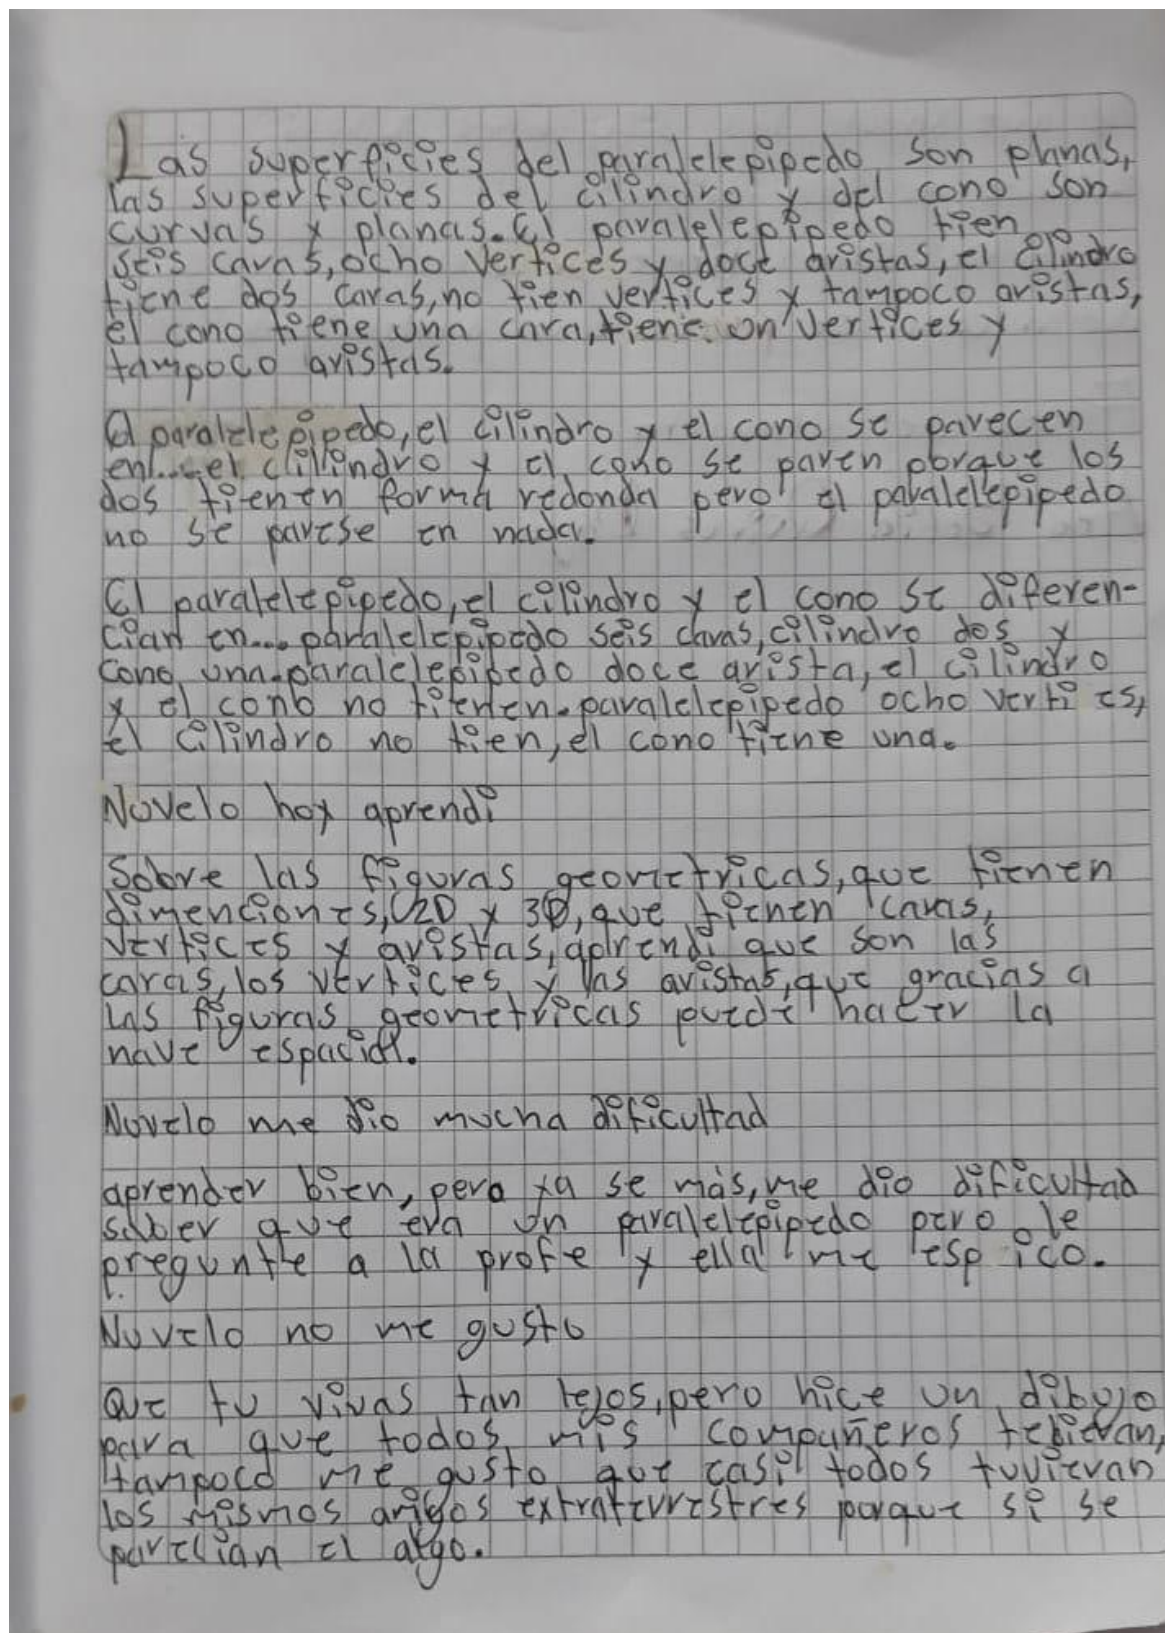 Las superficies del paralelepipedo son planas,
las superficies del cilindro y del cono son
curvas y planas. El paralelepipedo tien
seis caras, ocho vertices y doce aristas, el cilindro
tiene dos caras, no tien vertices y tampoco aristas,
el cono tiene una cara, tiene un vertices y
tampoco aristas.
El paralelepipedo, el cilindro y el cono se parecen
en... el cilindro y el cono se paren porque los
dos tienen forma redonda pero el paralelepipedo
no se parese en nada.
El paralelepipedo, el cilindro y el cono se diferen-
cian en... paralelepipedo seis caras, cilindro dos y
cono una. paralelepipedo doce arista, el cilindro
y el cono no tienen. paralelepipedo ocho verti es,
el cilindro no tien, el cono tiene una.
Novelo hoy aprendi
Sobre las figuras geometricas, que tienen
dimenciones, 2D y 3D, que tienen caras,
vertices y aristas, aprendi que son las
caras, los vertices y las aristas, que gracias a
las figuras geometricas puede hacer la
nave espacial.
Novelo me dio mucha dificultad
aprender bien, pero ya se más, me dio dificultad
saber que era un paralelepipedo pero le
pregunte a la profe y ella me esp ico.
Novelo no me gusto
Que tu vivas tan lejos, pero hice un dibujo
para que todos mis compañeros te
tampoco me gusto que casi todos tuvieran
los mismos amigos extraterrestres porque si se
parecian el algo.